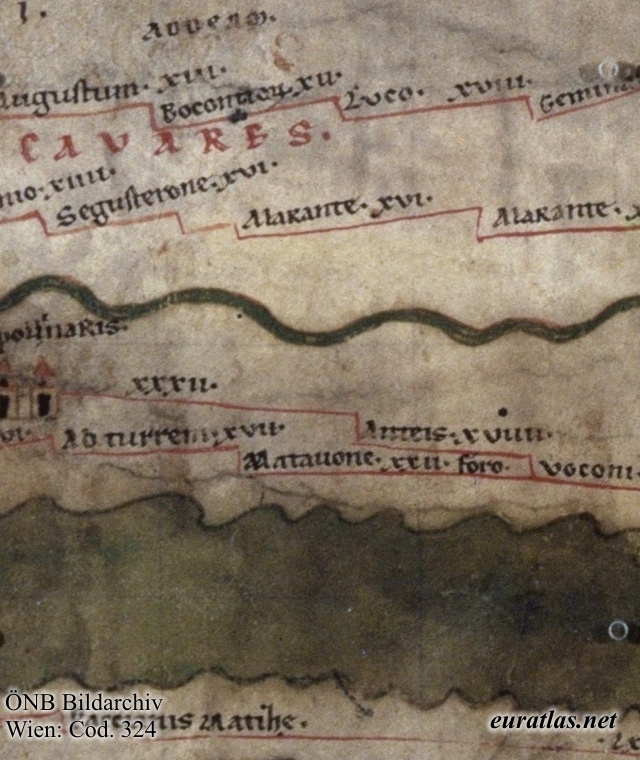 Augustum. xiii.
Bocontiou. xii.
Luco. xviii.
Gemin
CAVARES.
nio. xiiii.
Segusterone. xvi.
Alarante. xvi.
Alarante. x
pollinaris.
xxxii.
vi.
Ad turrem. xvii.
Anteis. xviiii.
Matavone. xxii. foro.
voconi.
Matihe.
ÖNB Bildarchiv
Wien: Cod. 324
euratlas.net